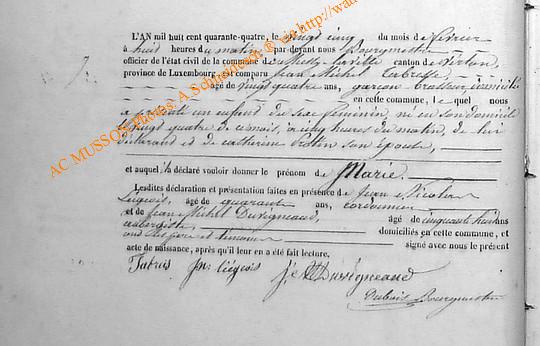 L'AN mil huit cent quarante-quatre, le vingt cinq du mois de février
à huit heures du matin par-devant nous Bourgmestre
officier de l'état civil de la commune de Mussy-la-ville canton de Virton,
province de Luxembourg a comparu Jean Michel
7. âgé de vingt quatre ans, garçon brasseur domicilié
en cette commune, lequel nous
a présenté un enfant du sexe féminin, né en son domicile
vingt quatre de ce mois, à cinq heures du matin, de lui
déclarant et de catherine son épouse,
et auquel il a déclaré vouloir donner le prénom de Marie.
Lesdites déclaration et présentation faites en présence de Jean Nicolas
Liégeois, âgé de quarante ans, cordonnier
et de Jean Michel Duvigneaud, âgé de cinquante huit ans
domiciliés en cette commune, et
ont les père et témoins signé avec nous le présent
acte de naissance, après qu'il leur en a été fait lecture.
Jn Liégeois J. M Duvigneaud
Dubois Bourgmestre
AC MUSSON Photos: A.Schnadt © via http://